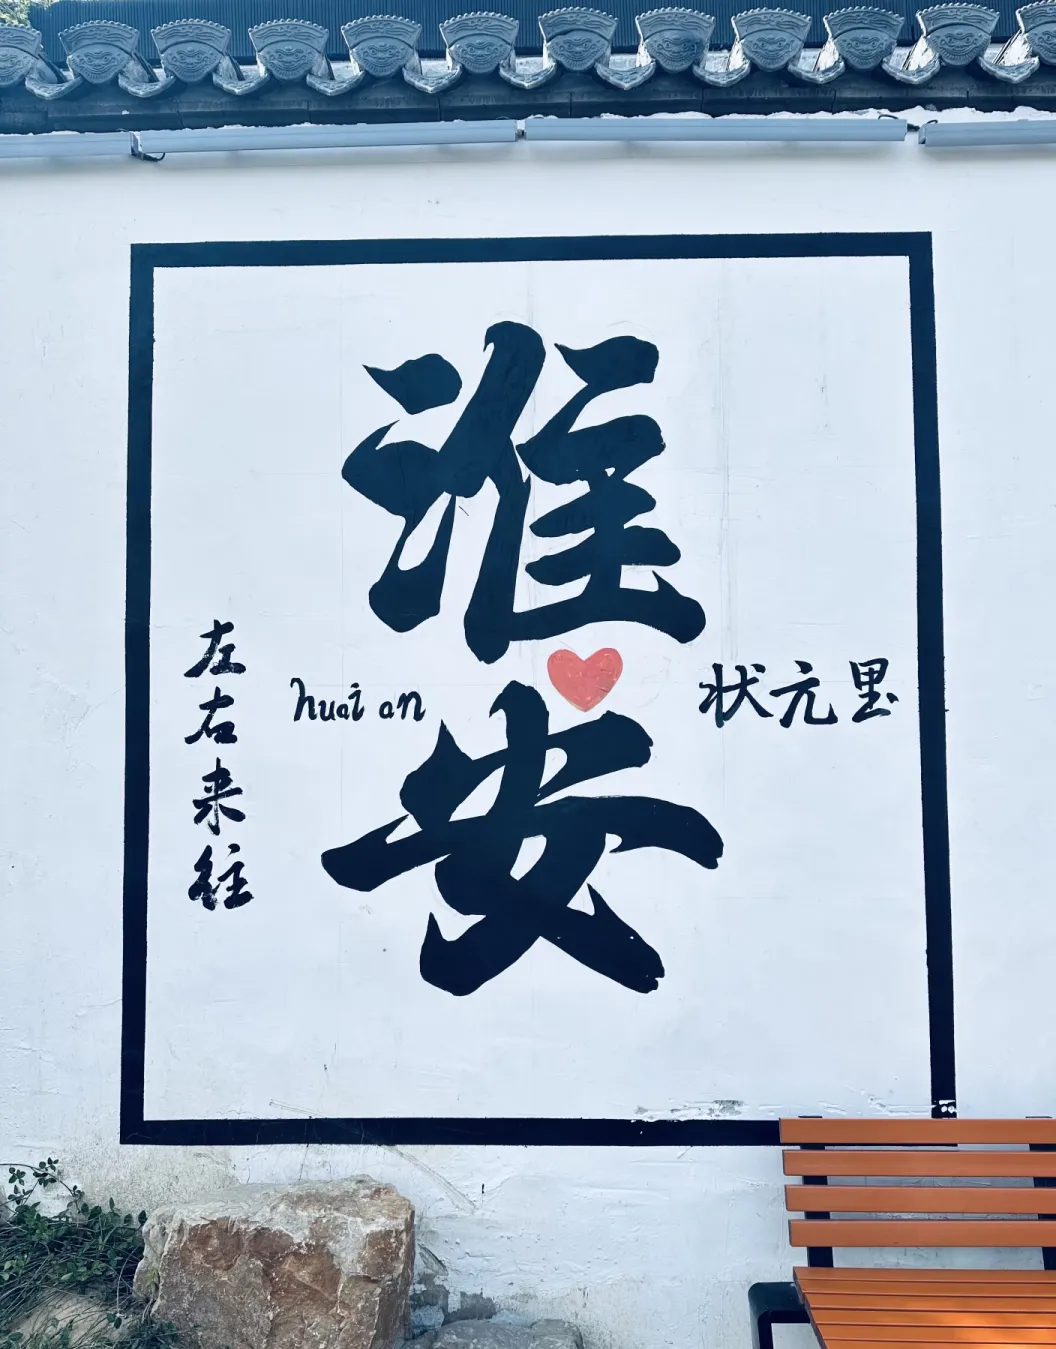 淮安
huai an
状元里
左右来往